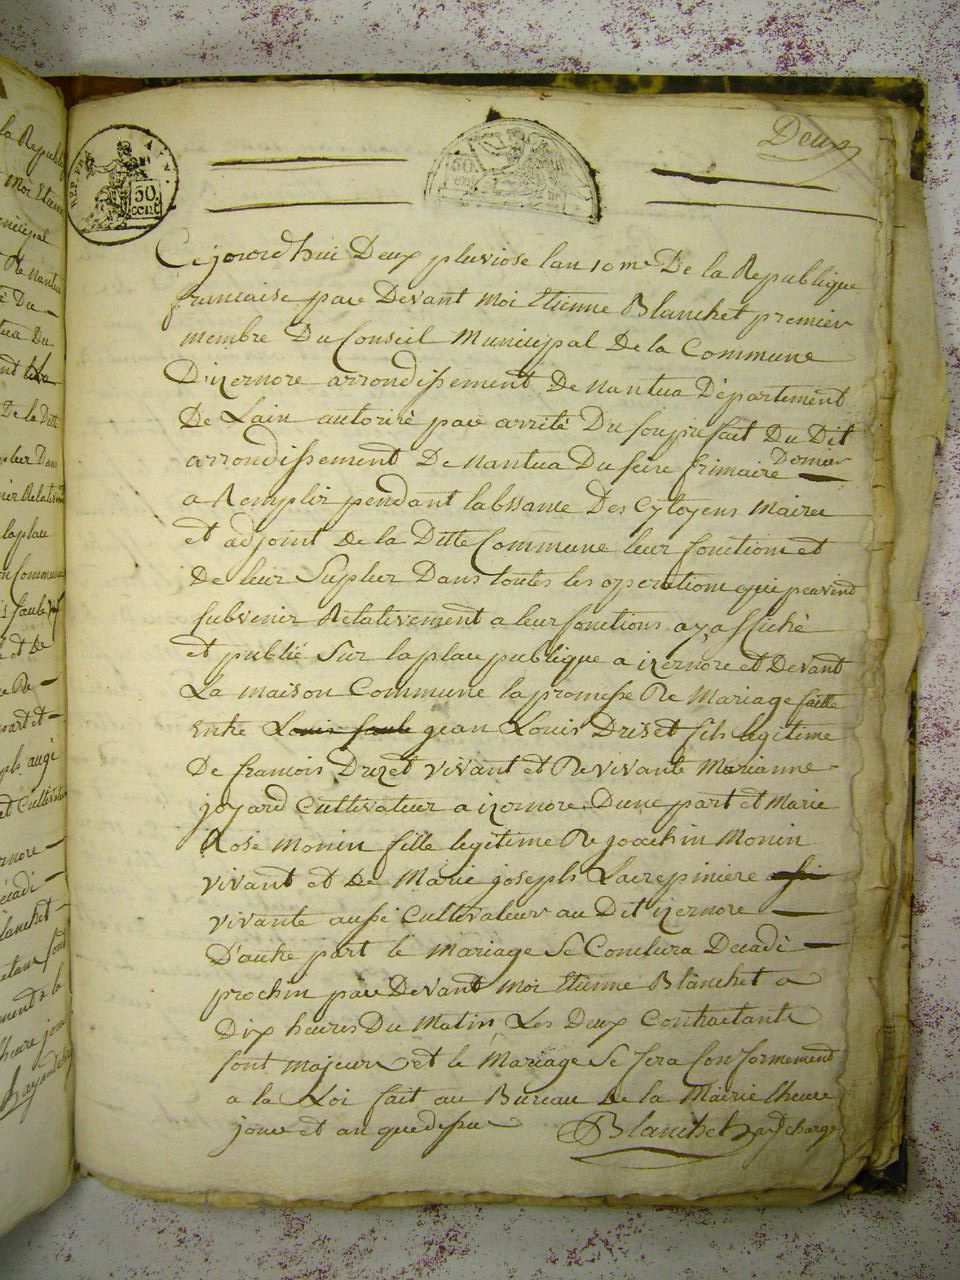 Deux
REP. FRA.
A V W.
50
cent
50
cent
Cejourdhui Deux pluviose lan 10me De la Republique
francaise par Devant Moi Etienne Blanchet premier
membre Du Conseil Municipal De la Commune
D'izernore arrondissement De Nantua Département
De Lain autorisé par arrêté Du souprefait Du Dit
arrondissement De Nantua Du seise frimaire Dernier
a Remplir pendant labssance Des Cytoyens Maire
et adjoint De la Ditte Commune leur fonction et
De leur Supleer Dans toutes les operation qui peuvend
subvenir Relativement a leur fonctions ay affiché
et publié Sur la place publique a izernore et Devant
La maison Commune la promesse De Mariage faitte
entre Louis jean Louis Drizet fils legitime
De francois Drizet vivant et De vivante Marianne
joyard Cultivateur a izernore Dune part et Marie
Rose Monin fille legitime De joachin Monin
vivant et De Marie josephs Lacrepiniere
vivante aussi Cultivateur au Dit izernore
D'autre part le Mariage Se Conclura Decadi
prochin par Devant Moi Etienne Blanchet a
Dix heures Du Matin Les Deux Contractants
sont majeurs et le Mariage Se fera Conformement
a la Loi fait au Bureau De la Mairie lheure
jour et an que dessus Blanchet
la Republi
Moi Etienne
Municipal
De Nantua
De la Ditte
Relativement
la place
et De
part et
et Cultivateur
Decadi
Blanchet